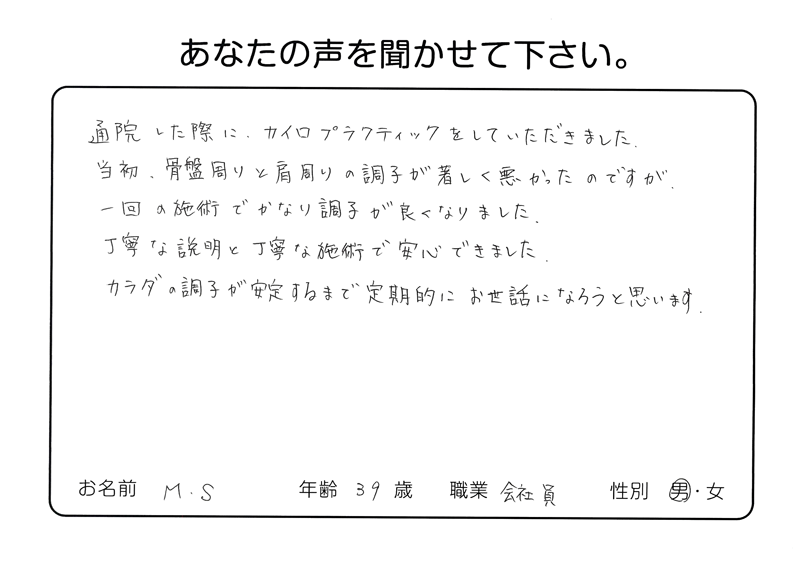 あなたの声を聞かせて下さい。
通院した際に、カイロプラクティックをしていただきました.
当初、骨盤周りと肩周りの調子が著しく悪かったのですが.
一回の施術でかなり調子が良くなりました.
丁寧な説明と丁寧な施術で安心できました.
カラダの調子が安定するまで定期的にお世話になろうと思います.
お名前 M.S 年齢 39 歳 職業 会社員 性別 男・女